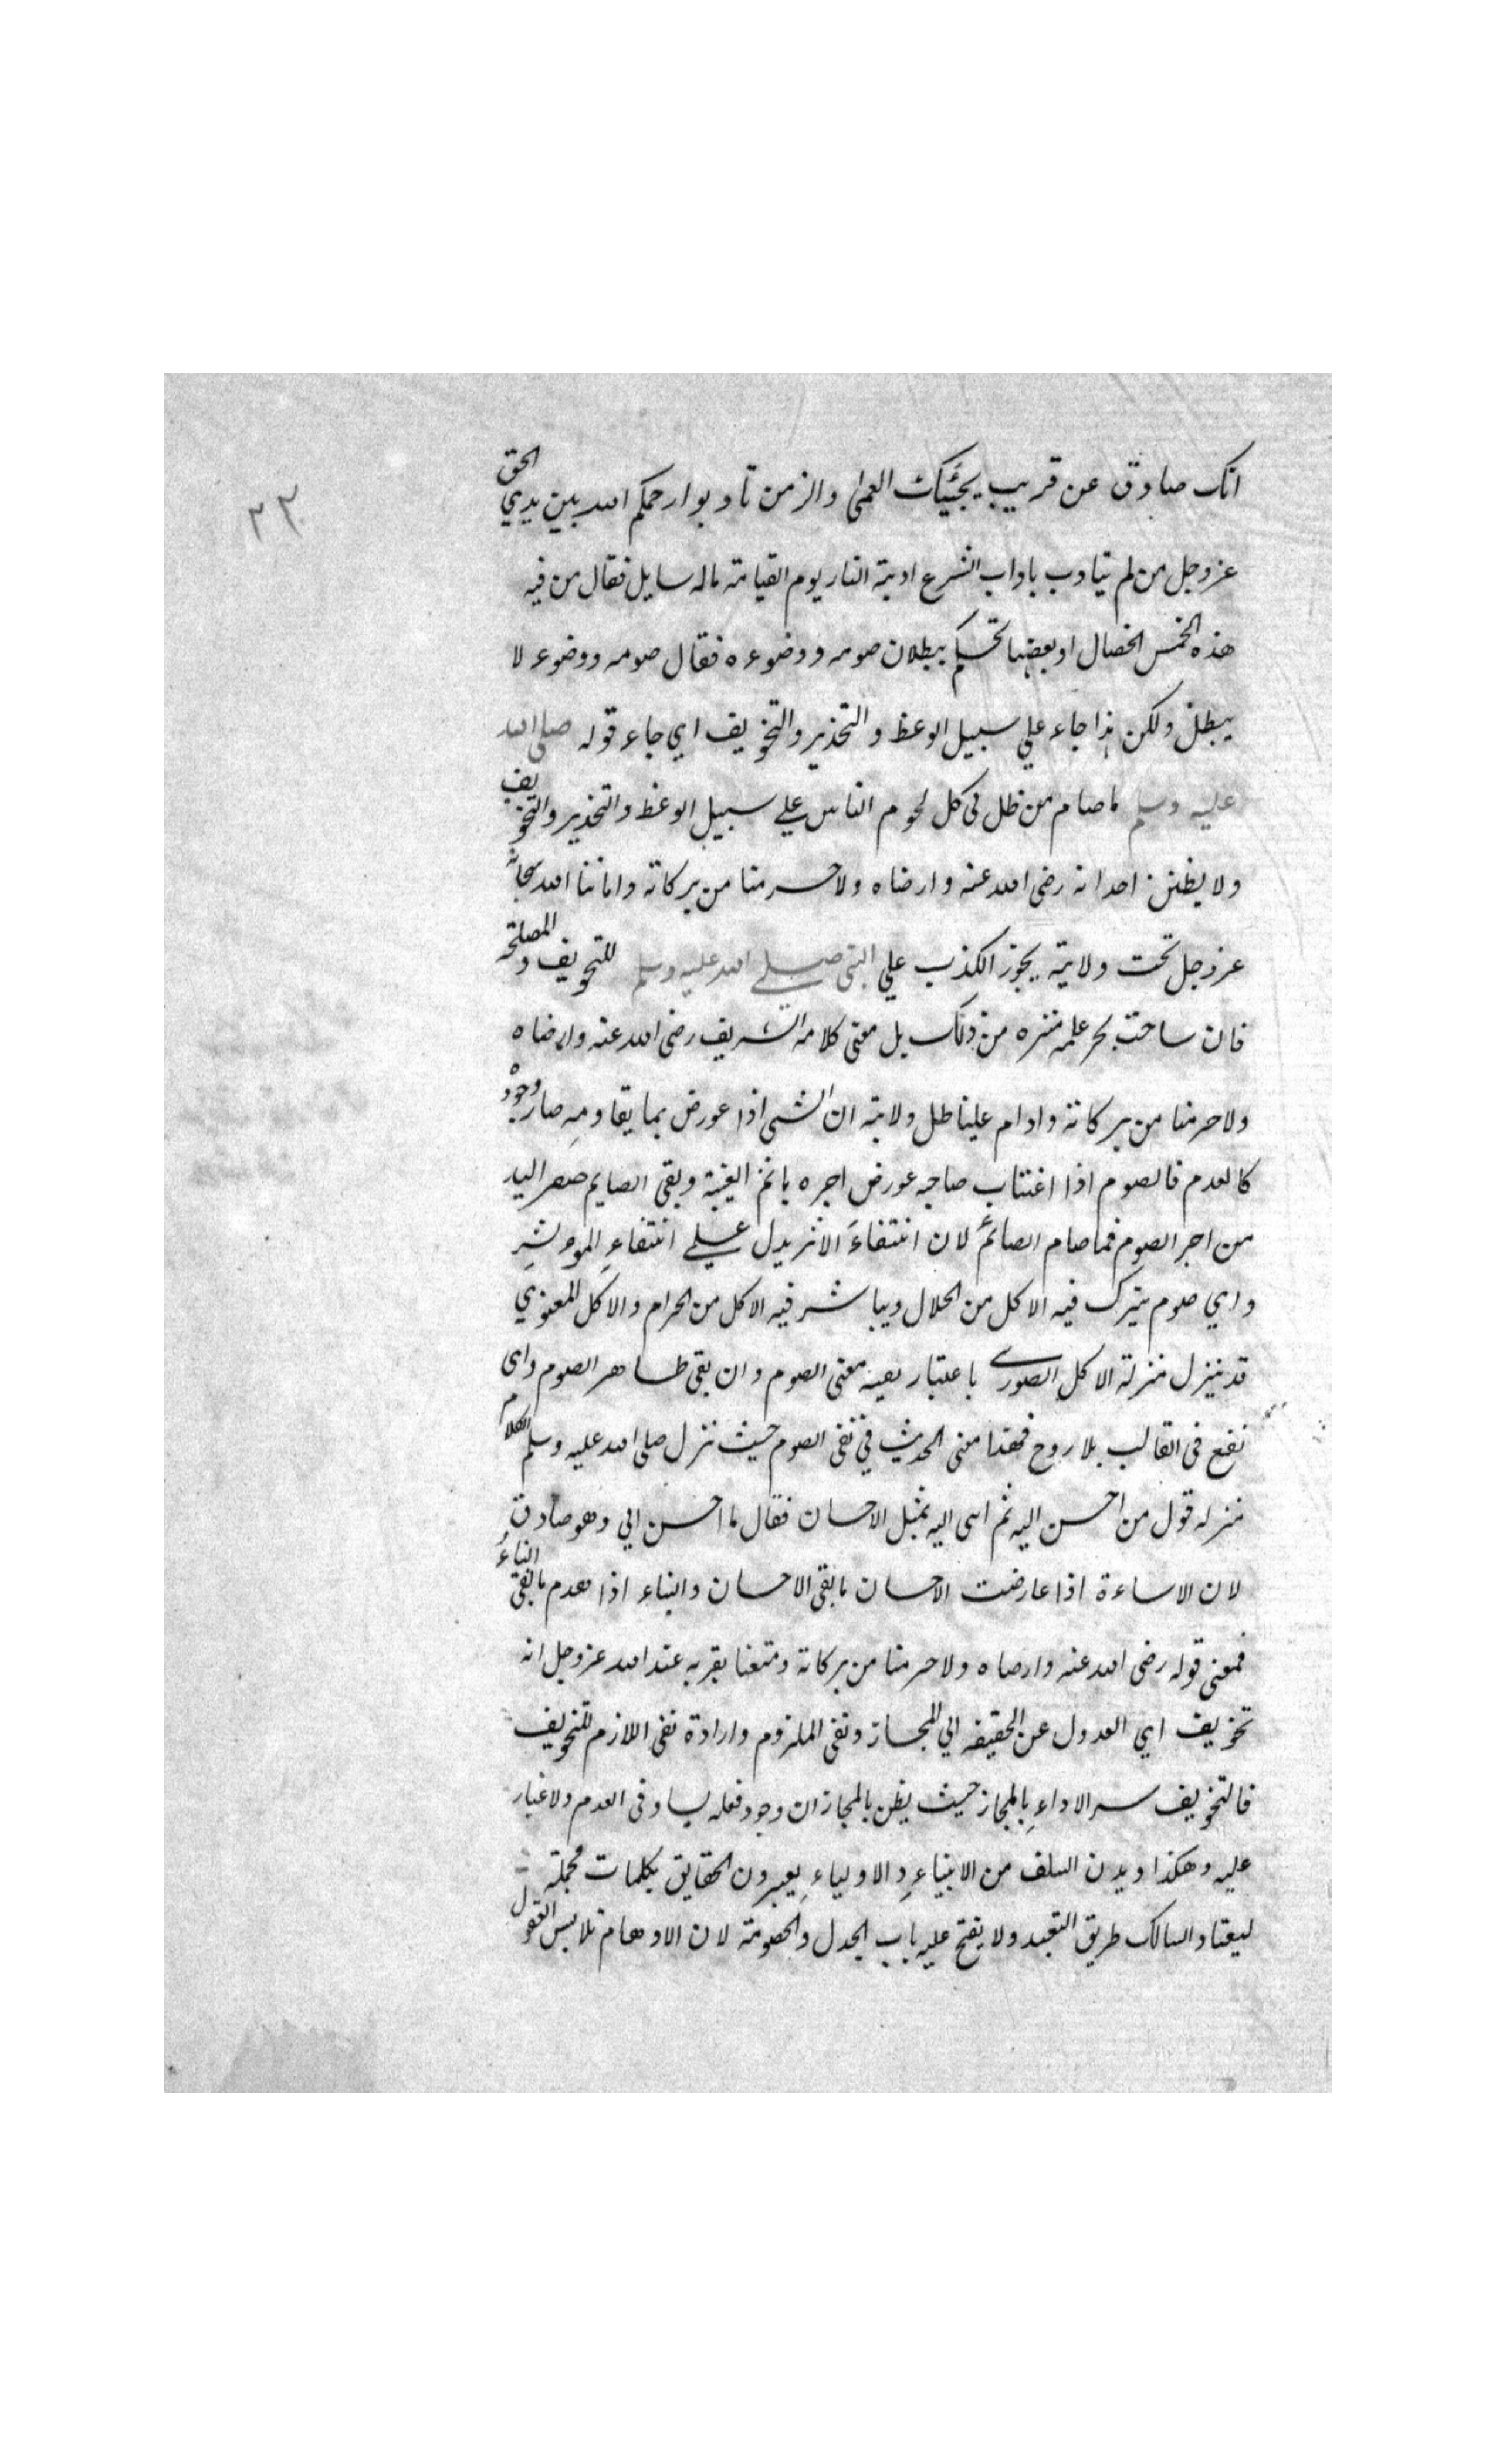 ٣٢
انك صادق عن قريب يجيئك العمى والزمن تادبوا رحمكم الله بين يدي الحق
عز وجل من لم يتادب باداب الشرع ادبته النار يوم القيامة ماله سايل فقال من فيه
هذه الخمس الخصال او بعضها تحكم ببطلان صومه ووضوءه فقال صومه ووضوءه لا
يبطل ولكن هذا جاء علي سبيل الوعظ والتحذير والتخويف اي جاء قوله صلى الله
عليه وسلم ما صام من ظل ياكل لحوم الناس علے سبيل الوعظ والتحذير والتخويف
ولا يظنن احد انه رضى الله عنه وارضاه ولا حرمنا من بركاته واماتنا الله سبحانه
عز وجل تحت ولايته يجوز الكذب علي النبى صلے الله عليه وسلم للتخويف والمصلحة
فان ساحت بحر علمه منزه من ذلك بل معنى كلامه الشريف رضى الله عنه وارضاه
ولا حرمنا من بركاته وادام علينا ظل ولايته ان الشى اذا عورض بما يقاومه صار وجوده
كالعدم فالصوم اذا اغتاب صاحبه عورض اجره باثم الغيبة وبقى الصايم صفر اليد
من اجر الصوم فما صام الصائم لان انتفاء الاثر يدل علے انتفاء الموثر
واي صوم يترك فيه الاكل من الحلال ويباشر فيه الاكل من الحرام والاكل المعنوي
قد ينزل منزلة الاكل الصورے باعتبار معنى الصوم وان بقى ظاهر الصوم واى
نفع فى القالب بلا روح فهذا معنى الحديث في نفى الصوم حيث نزل صلى الله عليه وسلم الكلام
منزله قول من احسن اليه ثم اسى اليه بمثل الاحسان فقال ما احسن الي وهو صادق
لان الاساءة اذا عارضت الاحسان ما بقى الاحسان والبناء اذا هدم ما بقى البناء
فمعنى قوله رضى الله عنه وارضاه ولا حرمنا من بركاته ومتعنا بقربه عند الله عز وجل انه
تخويف اي العدول عن الحقيقه الي المجاز ونفى الملزوم وارادة نفى اللازم للتخويف
فالتخويف سر الاداء بالمجاز حيث يظن بالمجاز ان وجود فعله يساوى العدم ولا غبار
عليه وهكذا ديدن السلف من الانبياء والاولياء يعبرون الحقايق بكلمات مجملة
ليعتاد السالك طريق التعبد ولا يفتح عليه باب الجدل والخصومة لان الاوهام تلابس العقول